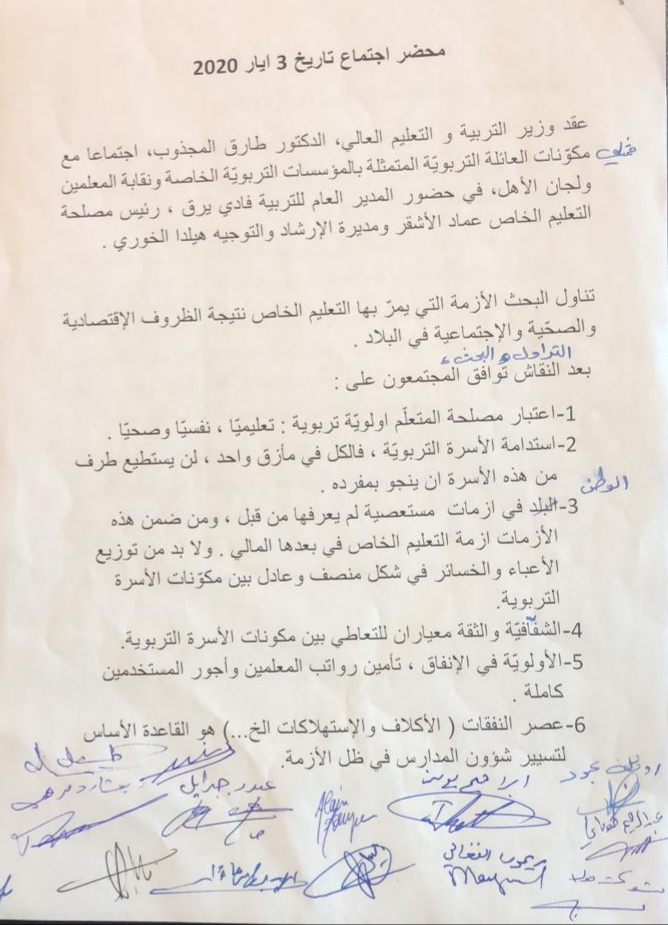 محضر اجتماع تاريخ 3 ايار 2020
عقد وزير التربية و التعليم العالي، الدكتور طارق المجذوب، اجتماعا مع
ممثلي
مكوّنات العائلة التربويّة المتمثلة بالمؤسسات التربويّة الخاصة ونقابة المعلمين
ولجان الأهل، في حضور المدير العام للتربية فادي يرق ، رئيس مصلحة
التعليم الخاص عماد الأشقر ومديرة الإرشاد والتوجيه هيلدا الخوري .
تناول البحث الأزمة التي يمرّ بها التعليم الخاص نتيجة الظروف الإقتصادية
والصحّية والإجتماعية في البلاد .
التداول والبحث ،
بعد النقاش توافق المجتمعون على :
1-اعتبار مصلحة المتعلّم اولويّة تربوية : تعليميّا ، نفسيّا وصحيّا .
2-استدامة الأسرة التربويّة ، فالكل في مأزق واحد ، لن يستطيع طرف
من هذه الأسرة ان ينجو بمفرده .
الوطن
3-البلد في ازمات مستعصية لم يعرفها من قبل ، ومن ضمن هذه
الأزمات ازمة التعليم الخاص في بعدها المالي . ولا بد من توزيع
الأعباء والخسائر في شكل منصف وعادل بين مكوّنات الأسرة
التربوية.
4-الشفّافيّة والثقة معياران للتعاطي بين مكونات الأسرة التربوية.
5-الأولويّة في الإنفاق ، تأمين رواتب المعلمين وأجور المستخدمين
كاملة .
6-عصر النفقات ( الأكلاف والإستهلاكات الخ...) هو القاعدة الأساس
لتسيير شؤون المدارس في ظل الأزمة.